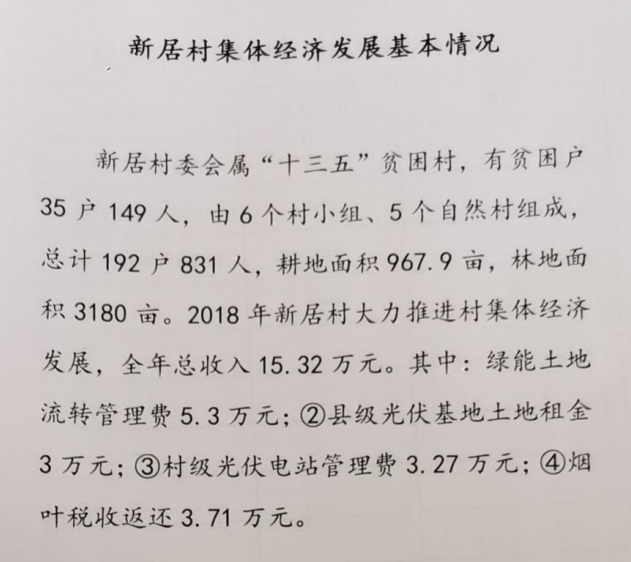 新居村集体经济发展基本情况
新居村委会属“十三五”贫困村，有贫困户
35 户 149 人，由 6 个村小组、5 个自然村组成，
总计 192 户 831 人，耕地面积 967.9 亩，林地面
积 3180 亩。2018 年新居村大力推进村集体经济
发展，全年总收入 15.32 万元。其中：绿能土地
流转管理费 5.3 万元；②县级光伏基地土地租金
3 万元；③村级光伏电站管理费 3.27 万元；④烟
叶税收返还 3.71 万元。